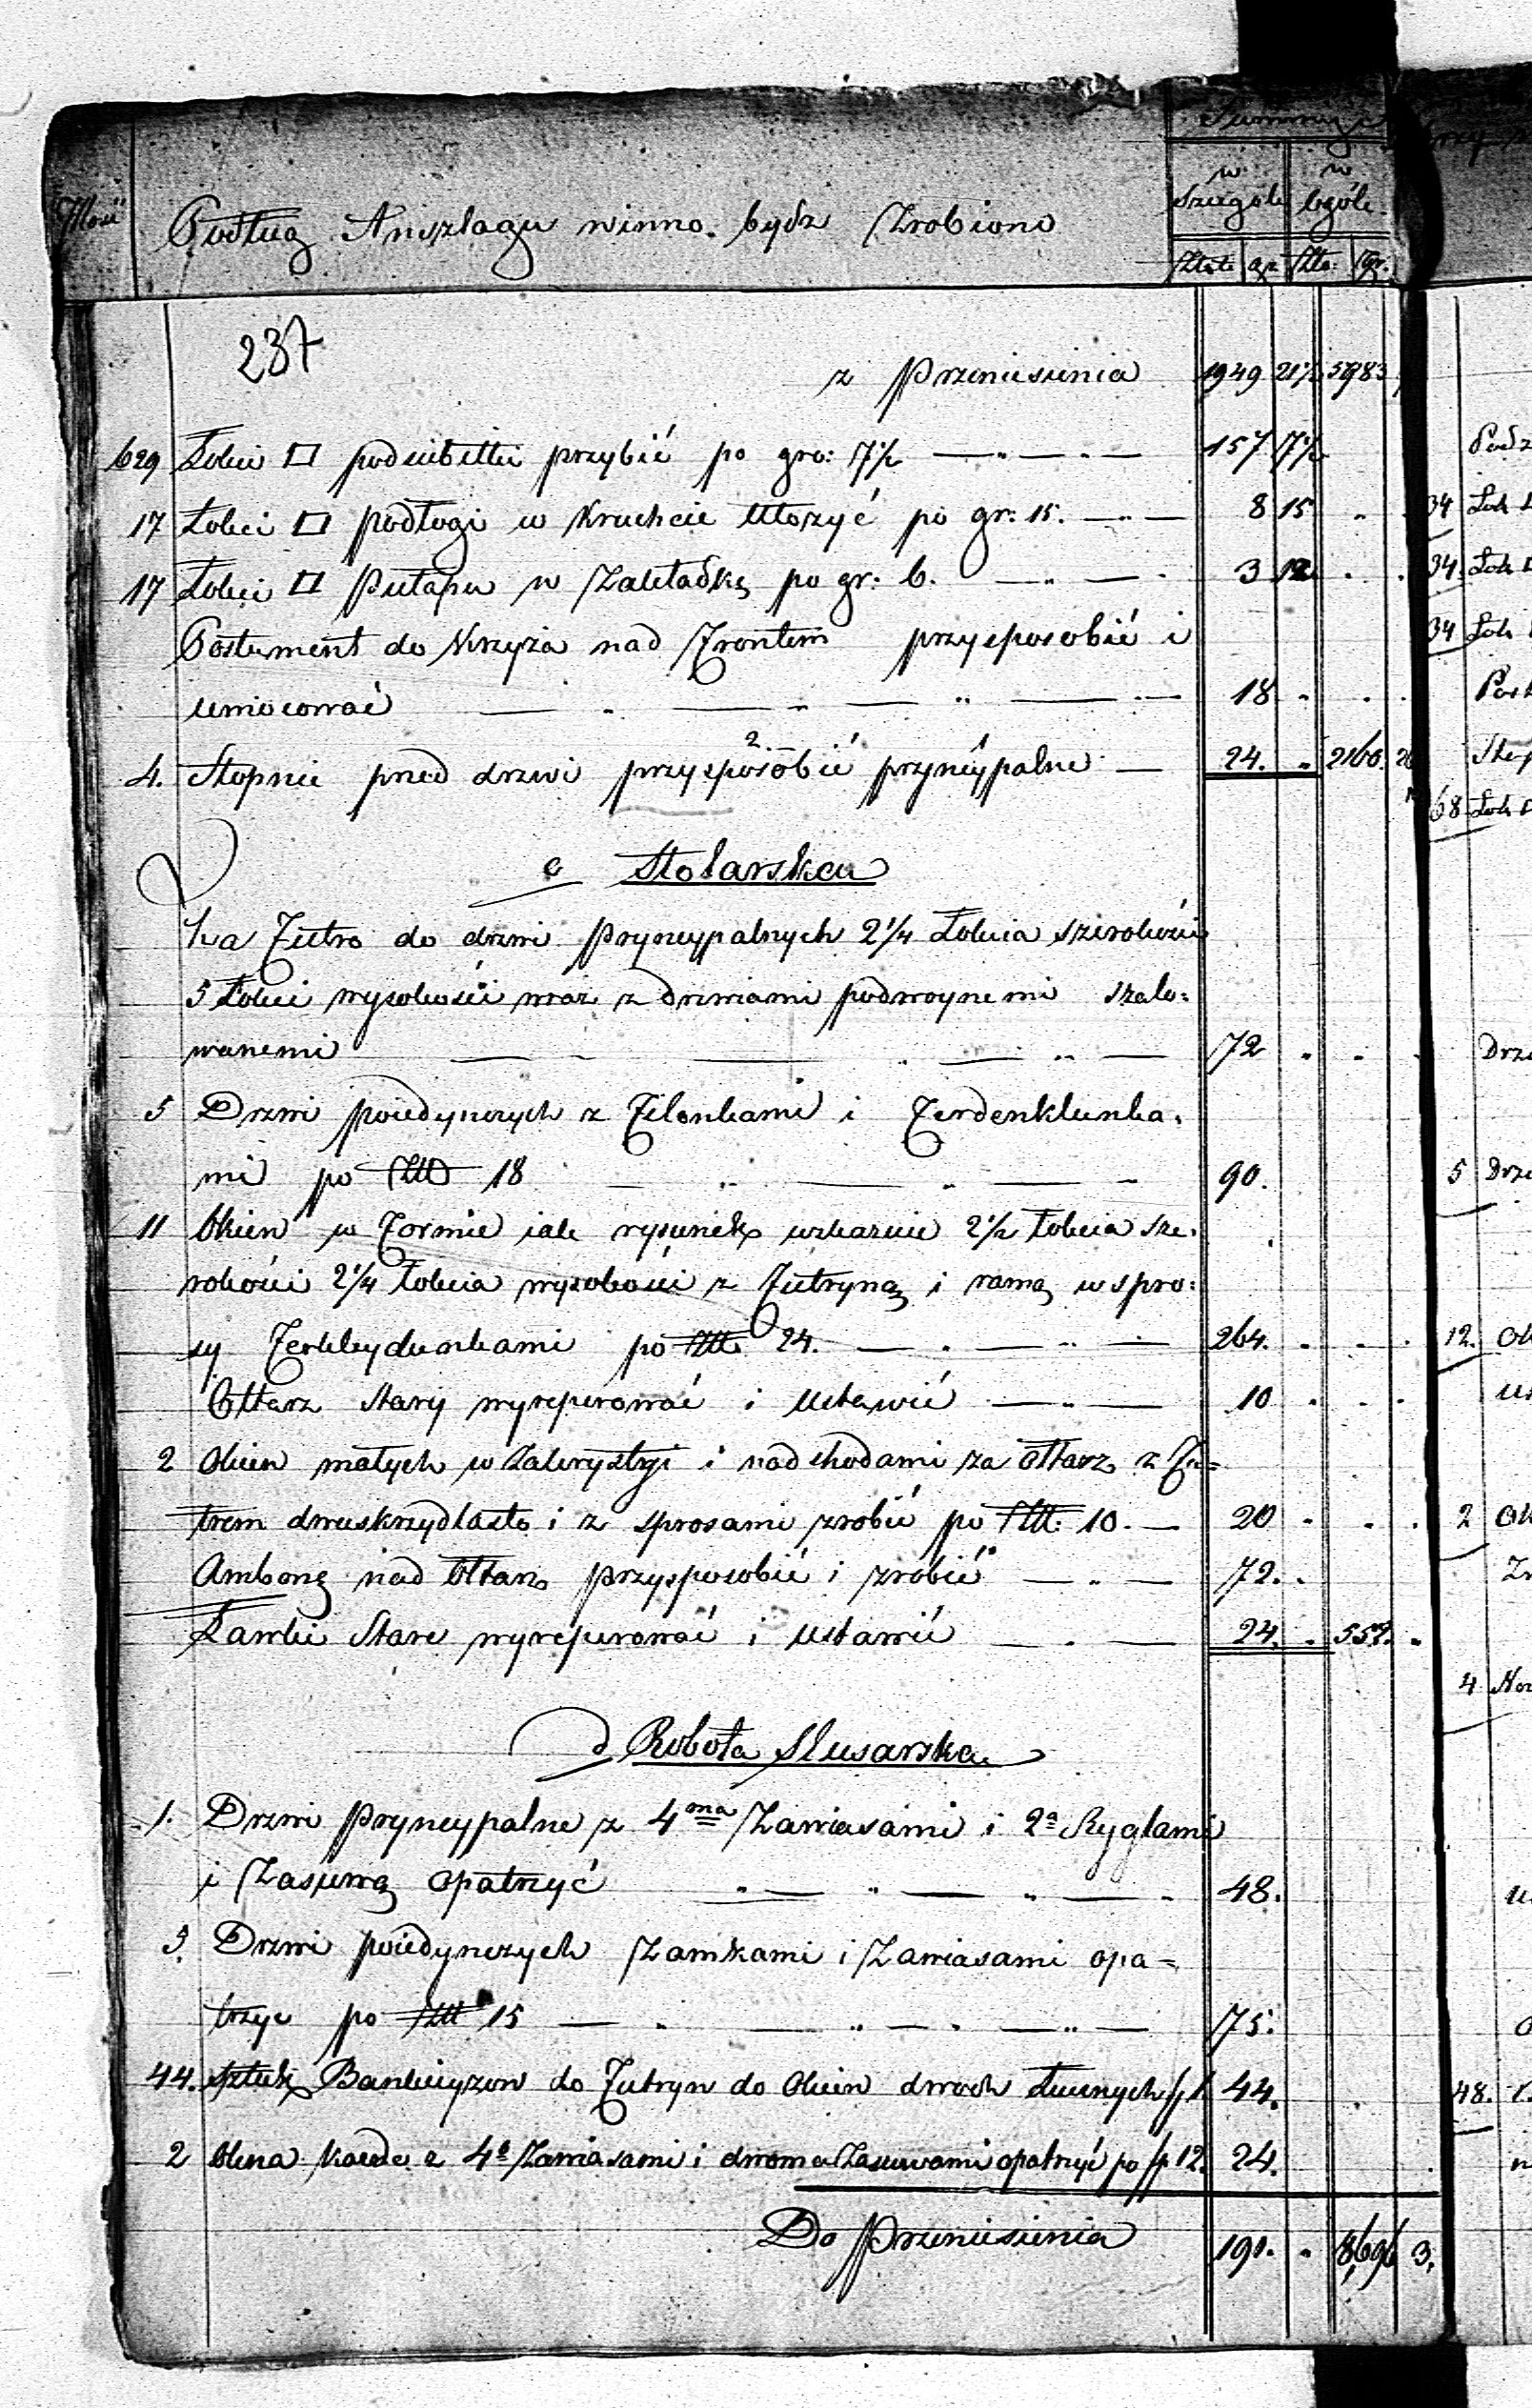 Summy
Ilość
Podług Anszlagu winno bydź Zrobiono
w Szczególe
w ogóle
Złot: gr. Zło: gr.
237
z Przeniesienia 1949 21½ 5983
629 Łokci □ podsiebitki przybić po gro: 7½ — " — " — 157 7½
17 Łokci □ podłogi w Kruchcie Ułożyć po gr: 15. — " — 8 15
17 Łokci □ Pułapu w Zakładkę po gr: 6. — " — 3 12
Postument do Krzyża nad Frontem przysposobić i
umocować — " — " — " — 18 "
4. Stopnie przed drzwi przysposobić 2 pryncypalne 1 — 24. " 2160. 26
c Stolarska
Na Futro do drzwi Pryncypalnych 2¼ Łokcia szerokości
5 Łokci wysokości wraz z drzwiami podwoynemi szalo=
wanemi — " — " — " — 72 "
5 Drzwi poiedynczych z Filonkami i Ferdenklunka.
mi po Złł 18 — " — " — 90.
11 Okien w Formie iak rysunek wskazuie 2½ Łokcia sze.
rokości 2¼ Łokcia wysokości z Futryną i ramą w spro=
sy Ferkleydunkami po Złł 24. — " — " — 264. "
Ołtarz Stary wyreperować i Ustawić — " — 10 "
2 Okien małych w Zakrystyi i nad schodami za Ołtarz z Fu=
trem dwuskrzydlasto i z sprosami zrobić po Złł: 10. — 20 "
Ambonę nad Ołtarz przysposobić i zrobić — " — 72. "
Ławki Stare wyreperować i Ustawić — " — 24. " 552. "
d Robota Slusarska
1. Drzwi Pryncypalne z 4ma Zawiasami i 2a Ryglami
i Zasuwą Opatrzyć " — " — " — 48.
5. Drzwi poiedynczych Zamkami i Zawiasami opa=
trzyc po Złł 15 — " — " — " — 75.
44. Sztuk Bankeyzow do Futryn do Okien dwoch Łucznych fl 1 44.
2 Okna Każde z 4a Zawiasami i dwoma Zasuwami opatrzyć po fl 12. 24.
Do Przeniesienia 191. " 8,696 3.
34 Łok
34. Łok
34 Łok
68 Łok
5 Drz
12. Ok
2 Ok
4
48.